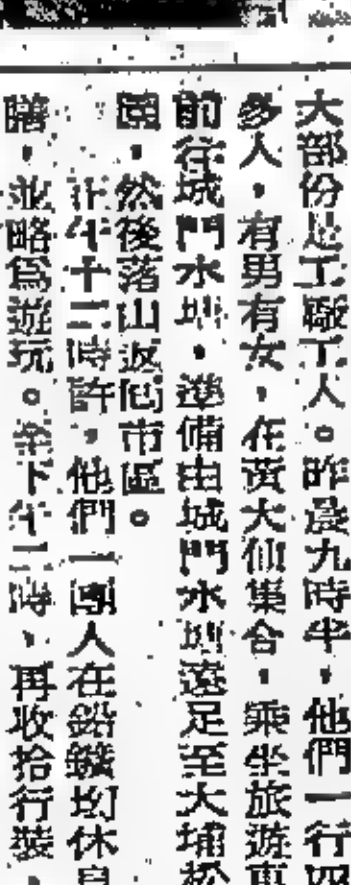 大部份是工廠工人。昨晨九時半，他們一行四
多人，有男有女，在黃大仙集合，乘坐旅遊車
前往城門水塘，準備由城門水塘遠足至大埔松
園，然後落山返回市區。
正午十二時許，他們一團人在鉛鑛坳休息
膳，並略為遊玩。至下午二時，再收拾行裝，